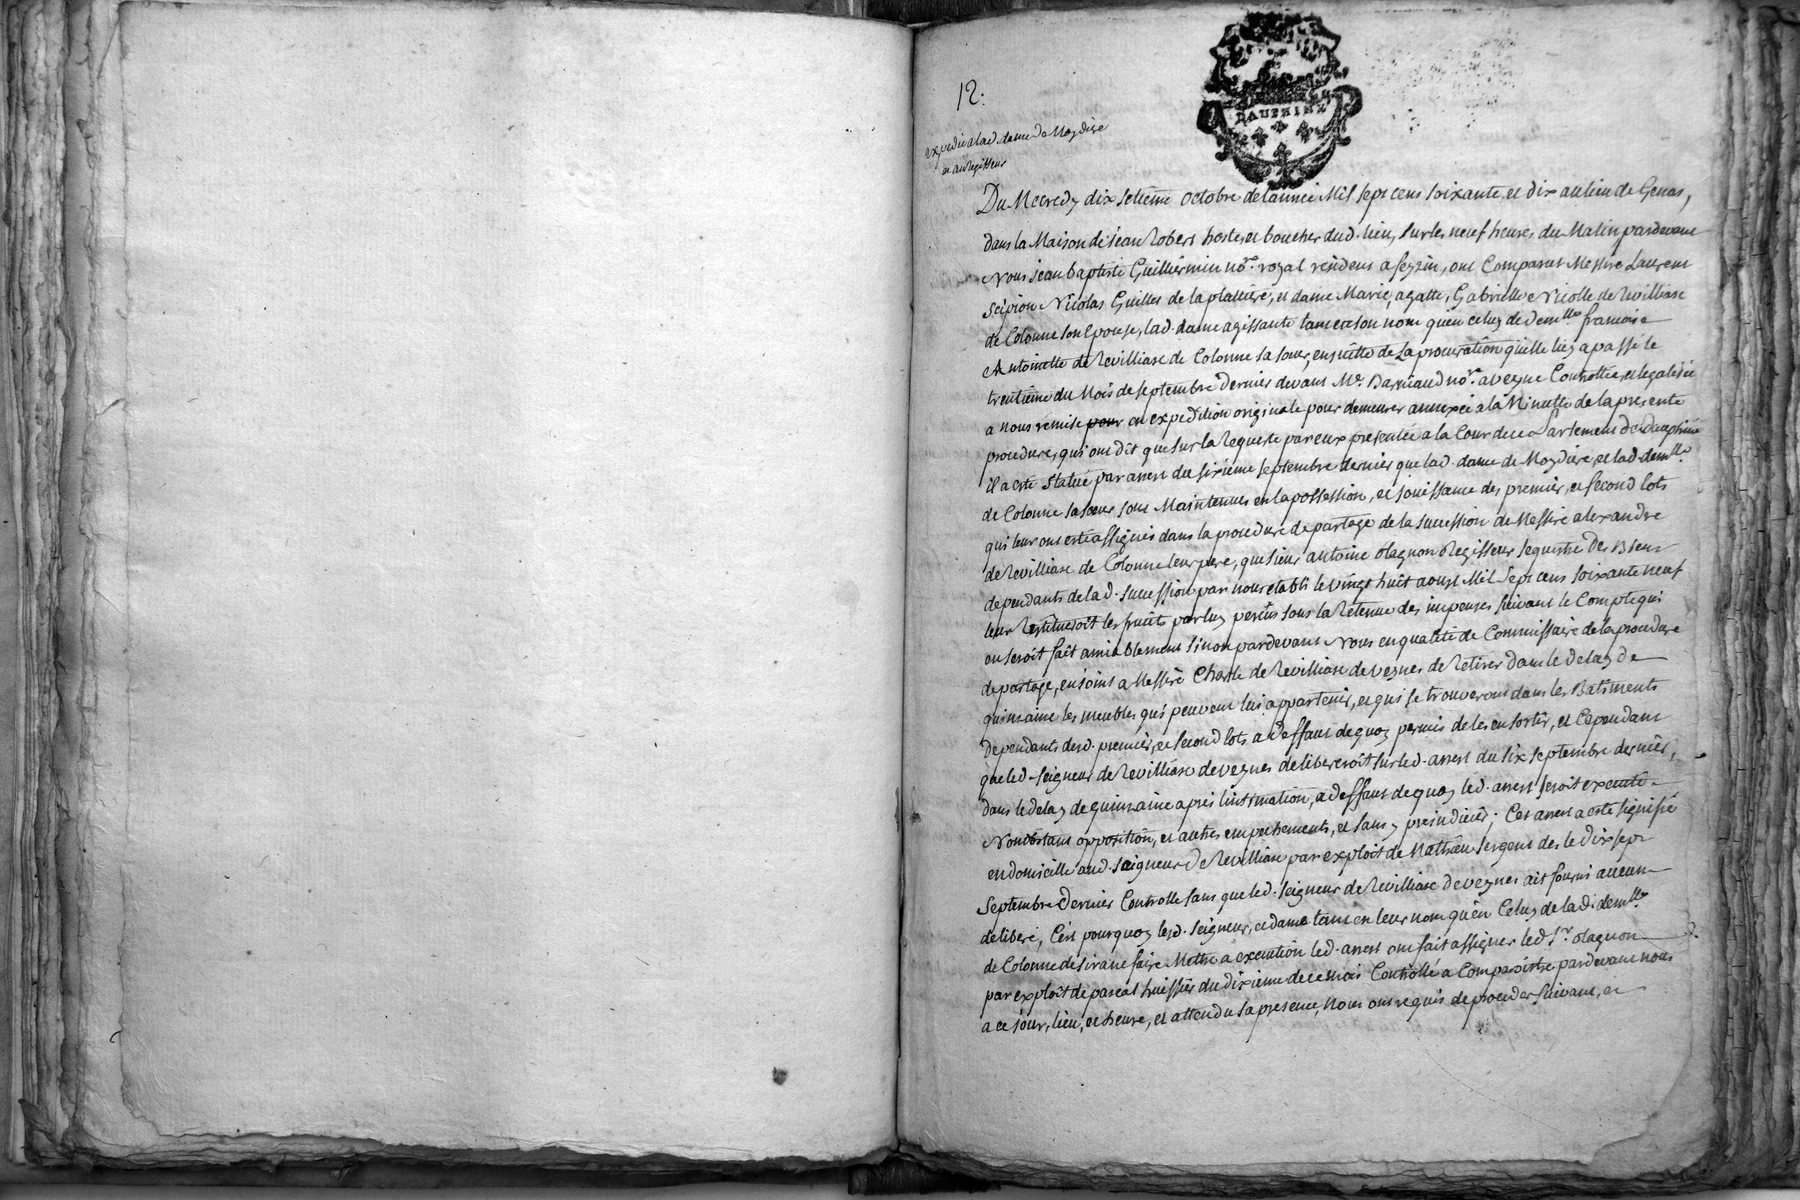 12.
DAUPHINE
expedié a lad. dame de Mazdiere
et au regisseur
Du Mecredy dix setieme octobre de lannée Mil sept cens soixante et dix au lieu de Genas,
dans la Maison de jean Robert hoste, et boucher dud. lieu, sur les neuf heures du Matin pardevant
Nous jean baptiste Guilliermin nore. royal residens a feyzin, ont Comparus Messire Laurens
Scipion Nicolas Guilles de la plattiere, et dame Marie, agatte, Gabrielle Nicolle de Revilliasc
de Colonne son Epouse, lad. dame agissante tant en son nom qu'en celuy de demlle. francoise
Antoinette de Revilliasc de Colonne sa soeur, ensuitte de La procuration qu'elle luy a passé le
trentieme du Mois de septembre dernier devant Me. Barniaud nore. a veyne Controllée, et legalisée
a nous remise pour en expedition originale pour demeurer annexée a la Minutte de la presente
procedure, qui ont dit que sur la Requeste par eux presentée a la Cour de ce Parlement de Dauphiné
il a esté statué par arrest du sixieme septembre dernier que lad. dame de Mazdiere, et lad. demlle.
de Colonne sa soeur sont Maintenues en la possession, et jouissance des premier, et second lots
qui leur ont esté assignés dans la procedure de partage de la succession de Messire alexandre
de Revilliasc de Colonne leur pere, que sieur antoine olagnon Regisseur sequestre des Biens
dependants de lad. succession par nous etabli le vingt huit aoust Mil sept cens soixante neuf
leur Restitueroit les fruits par luy perçus sous la Retenue des impenses suivant le Compte qui
en seroit fait amiablement sinon pardevant Nous en qualité de Commissaire de la procedure
de partage, enjoint a Messire Charle de Revilliasc de veynes de Retirer dans le delay de
quinzaine les meubles qui peuvent luy appartenir, et qui se trouveront dans les Batiments
dependants desd. premier, et second lots a deffaut de quoy permis de les en sortir, et Cependant
que led. seigneur de Revilliasc de veynes delibereroit sur led. arrest du six septembre dernier,
dans le delay de quinzaine apres l'intimation, a deffaut de quoy led. arrest seroit executé
Nonobstant opposition, et autres empechements, et sans y prejudicier; Cet arrest a esté signifié
en domicille aud. seigneur de Revilliasc par exploit de Mathieu sergent des le dix sept
Septembre dernier Controllé sans que led. seigneur de Revilliasc de veynes ait fourni aucun
deliberé, C'est pourquoy lesd. seigneur, et dame tant en leur nom qu'en Celuy de lad. demlle.
de Colonne desirant faire Mettre a execution led. arrest ont fait assigner led. Sr. olagnon
par exploit de pascal huissier du dixieme de ce mois Controllé a Comparoistre pardevant nous
a ce jour, lieu, et heure, et attendu sa presence, Nous ont requis de proceder suivant, et